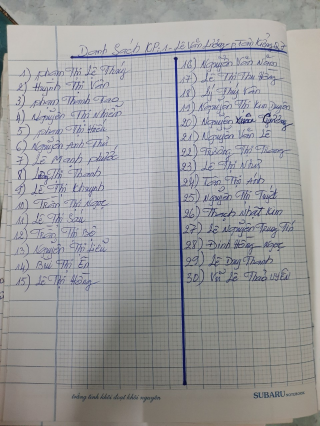 Danh Sách KP1 - Lê Văn Lương - P Tân Kiểng Q7
1) Phạm Thị Lệ Thủy
2) Huỳnh Thị Vân
3) Phạm Thanh Tao
4) Nguyễn Thị Nhiên
5) Phạm Thị
6) Nguyễn Anh Thư
7) Lê Mạnh Phước
8) Thị Thanh
9) Lê Thị Khuynh
10) Trần Thị Ngọc
11) Lê Thị Sáu
12) Trần Thị Bô
13) Nguyễn Thị Liễu
14) Bùi Thị Én
15) Lê Thị Hồng
16) Nguyễn Văn Năm
17) Lê Thị Thu Hồng
18) Lý Thụy Vân
19) Nguyễn Thị Duyên
20) Nguyễn Cường
21) Nguyễn Văn Lễ
22) Trương Thị Thương
23) Lê Thị Như
24) Tôn Thị Anh
25) Nguyễn Thị Tuyết
26) Thạch Nhật
27) Lê Nguyễn Trung Trí
28) Đinh Hồng Ngọc
29) Lê Duy Thanh
30) Vũ Lê Thảo Uyên
SUBARU